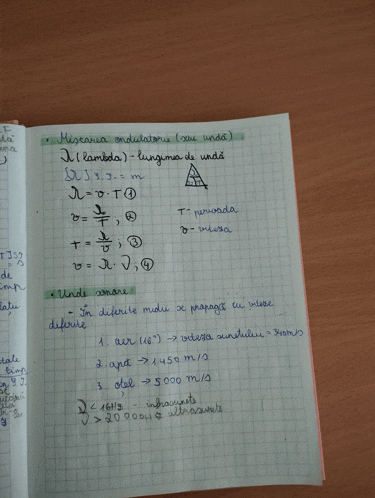 • Mișcarea ondulatorie (sau undă)
λ (lambda) - lungimea de undă
[λ] S.I. = m
λ = v · T ①
v = λ/T ; ②
T - perioada
T = λ/v ; ③
v - viteza
v = λ · ν ; ④
• Unde sonore
- În diferite medii se propagă cu viteze
diferite
1. aer (16°) → viteza sunetului = 340 m/s
2. apă → 1450 m/s
3. oțel → 5000 m/s
ν < 16Hz - infrasunete
ν > 20000Hz ultrasunete